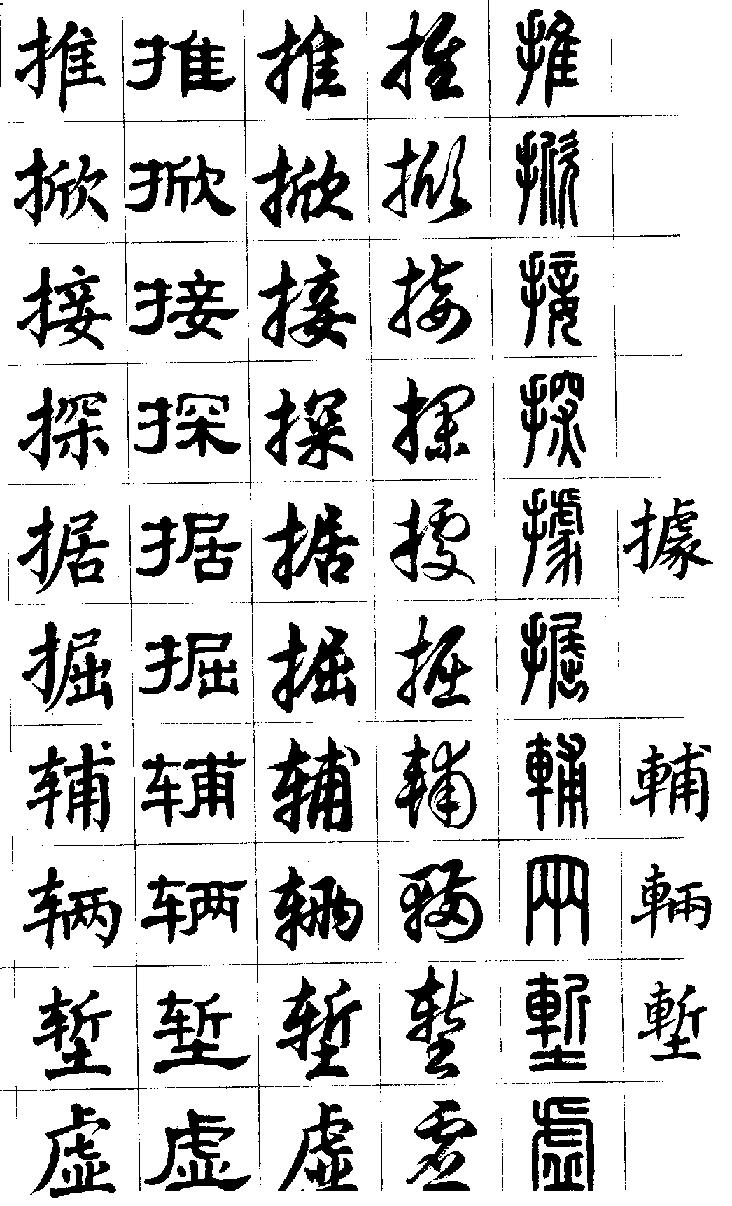 推 推 推 推 推
掀 掀 掀 掀 掀
接 接 接 接 接
探 探 探 探 探
据 据 据 據 據 據
掘 掘 掘 掘
辅 辅 辅 輔 輔 輔
辆 辆 辆 輛 兩 輛
堑 堑 堑 塹 塹 塹
虚 虚 虚 虚 虚